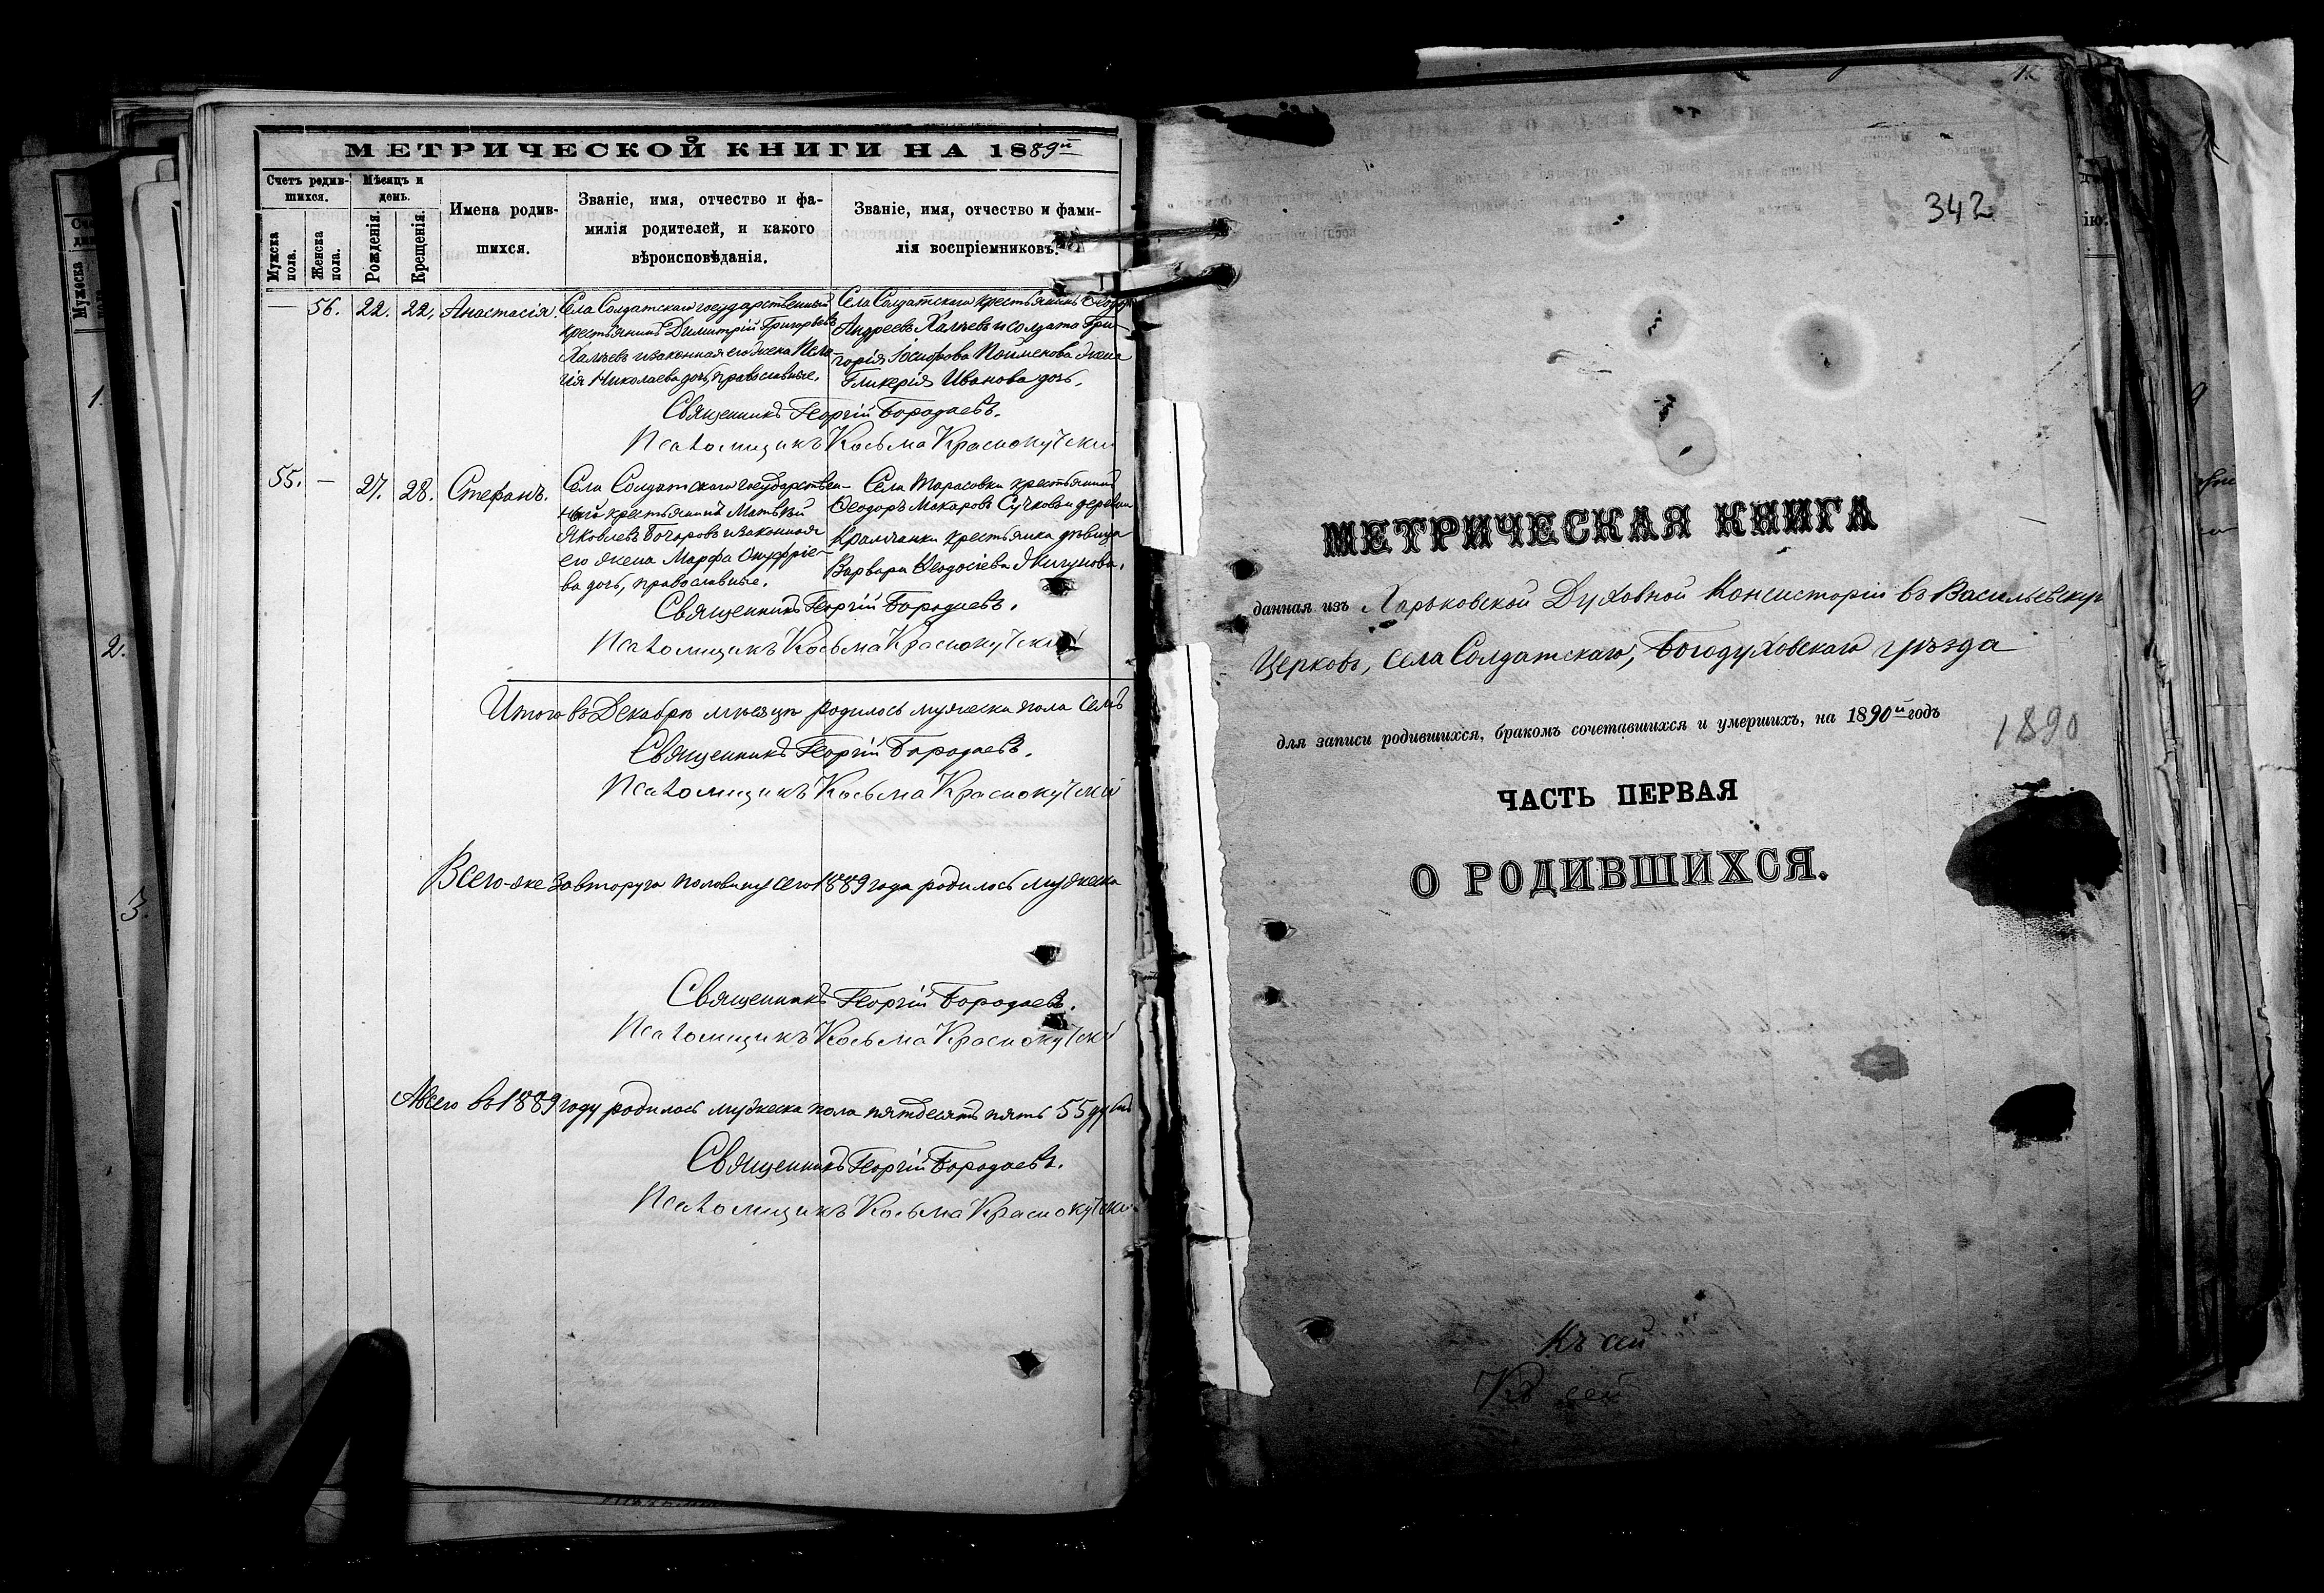 МЕТРИЧЕСКОЙ КНИГИ НА 1889й
Счетъ родив-
шихся.
Мѣсяцъ и
день.
Мужска
пола.
Женска
пола.
Рожденія.
Крещенія.
Имена родив-
шихся.
Званіе, имя, отчество и фа-
милія родителей, и какого
вѣроисповѣданія.
Званіе, имя, отчество и фами-
лія воспріемниковъ.
— 56. 22. 22. Анастасія.
Села Солдатскаго государственный
крестьянинъ Димитрій Григорьевъ
Халѣевъ и законная его жена Пела-
гія Николаева дочь, православные.
Села Солдатскаго крестьянинъ
Андреевъ Халѣевъ и солдата Гри-
горія Іосифова Пойменова жена
Гликерія Иванова дочь.
Священникъ Георгій Бородаевъ.
Псаломщикъ Косьма Краснокутскій
55. — 27. 28. Стефанъ.
Села Солдатскаго государствен-
ный крестьянинъ Матвѣй
Яковлевъ Бочаровъ и законная
его жена Марфа Онуфріе-
ва дочь, православные.
Села Тарасовки крестьянинъ
Ѳеодоръ Макаровъ Сучковъ и деревни
крестьянка дѣвица
Варвара Ѳеодосіева
Священникъ Георгій Бородаевъ.
Псаломщикъ Косьма Краснокутскій
Итого въ Декабрѣ мѣсяцѣ родилось мужеска пола семь
Священникъ Георгій Бородаевъ.
Псаломщикъ Косьма Краснокутскій
Всего-же за вторую половину сего 1889 года родилось мужеска
Священникъ Георгій Бородаевъ.
Псаломщикъ Косьма Краснокутскій
А всего въ 1889 году родилось мужеска пола пятдесятъ пять 55 душъ
Священникъ Георгій Бородаевъ.
Псаломщикъ Косьма Краснокутскій
1.
2.
3.
342
МЕТРИЧЕСКАЯ КНИГА
данная изъ Харьковской Духовной Консисторіи въ Васильевскую
Церковь, села Солдатскаго, Богодуховскаго уѣзда
для записи родившихся, бракомъ сочетавшихся и умершихъ, на 1890й годъ
1890
ЧАСТЬ ПЕРВАЯ
О РОДИВШИХСЯ.
Къ сей
Къ сей